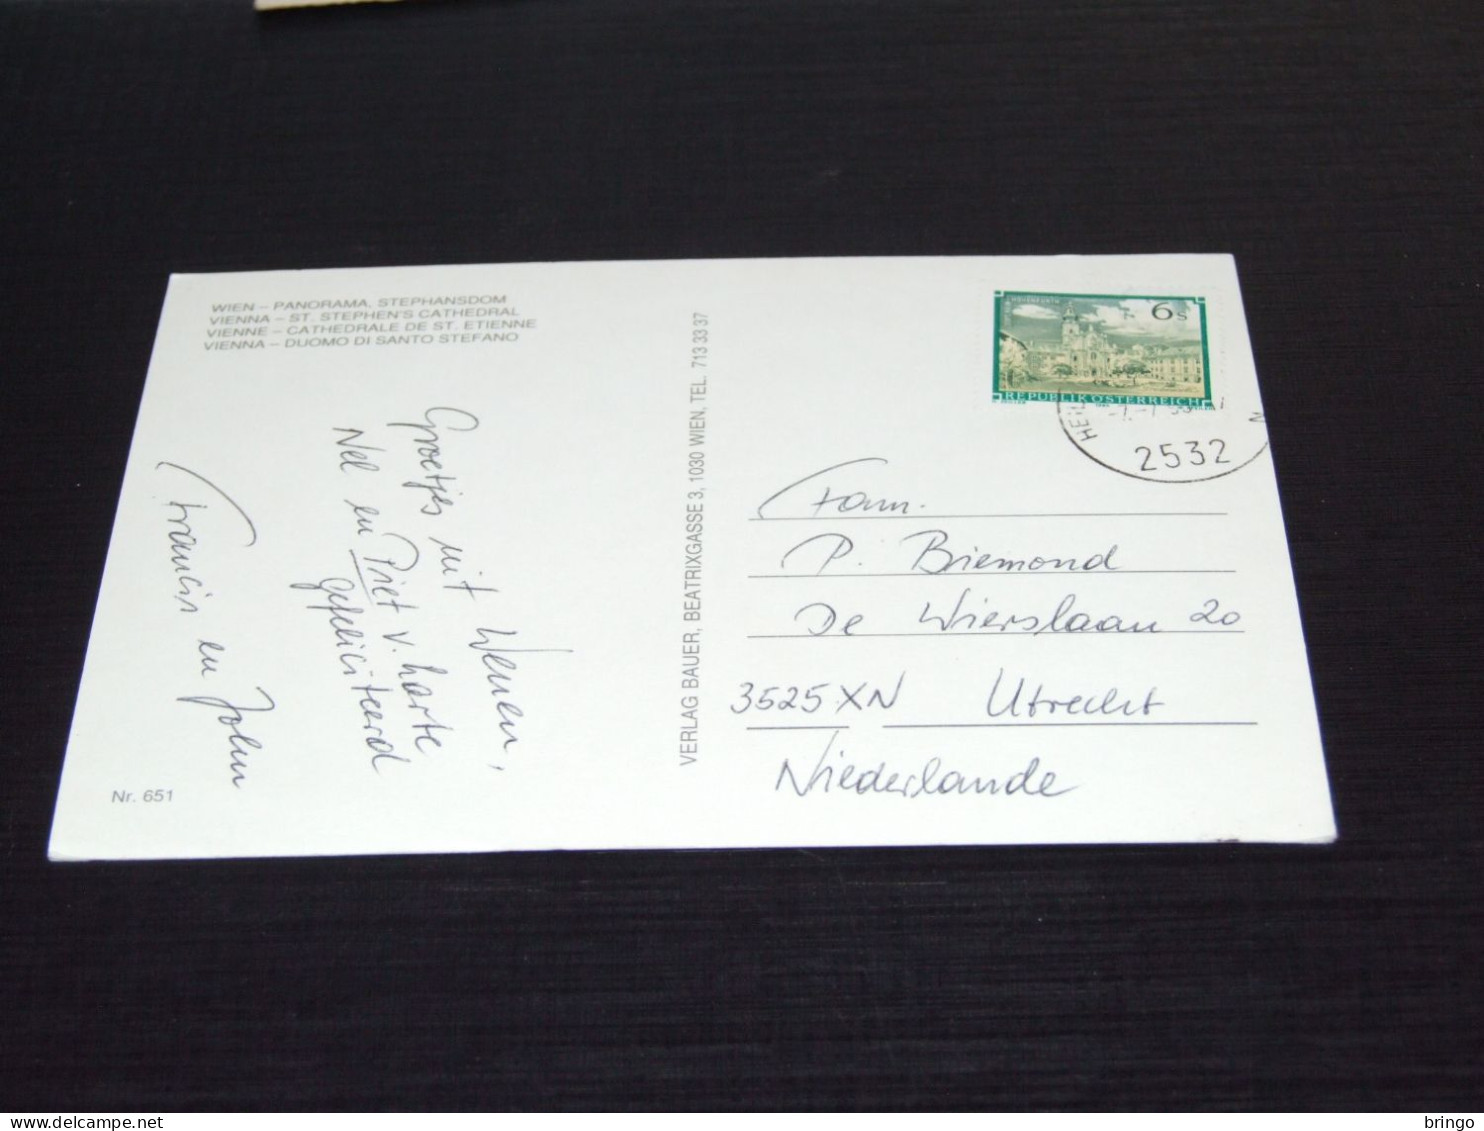 WIEN – PANORAMA, STEPHANSDOM
VIENNA – ST. STEPHEN'S CATHEDRAL
VIENNE – CATHEDRALE DE ST. ETIENNE
VIENNA – DUOMO DI SANTO STEFANO
Groetjes uit Wenen,
Nel en Piet v. harte
gefeliciteerd
Francis en John
Nr. 651
VERLAG BAUER, BEATRIXGASSE 3, 1030 WIEN, TEL. 713 33 37
6 S
REPUBLIK ÖSTERREICH
2532
Fam.
P. Biemond
De Wierslaan 20
3525 XN Utrecht
Niederlande
bringo